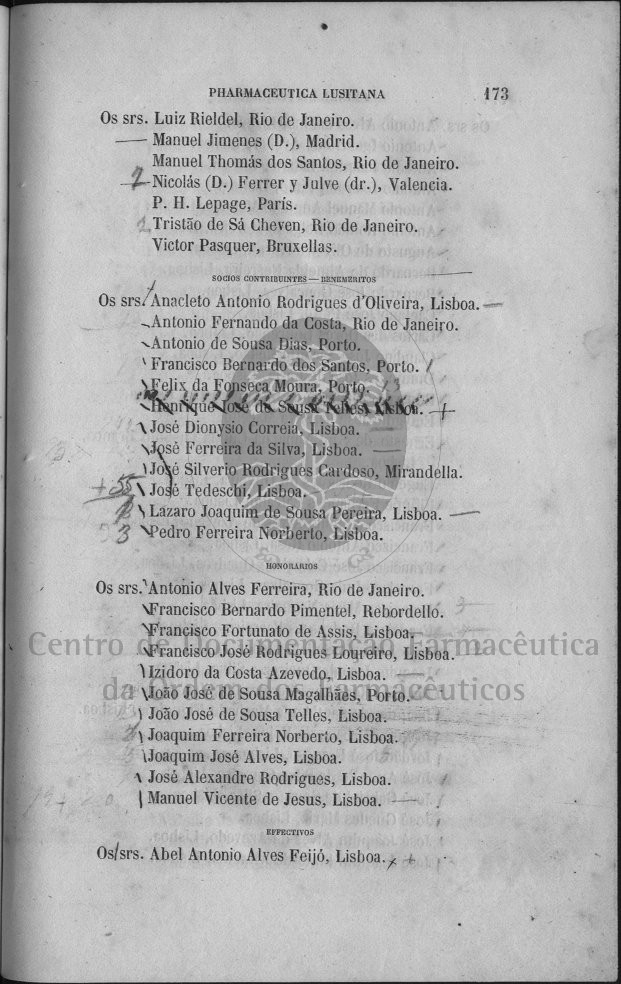 PHARMACEUTICA LUSITANA 173
Os srs. Luiz Rieldel, Rio de Janeiro.
Manuel Jimenes (D.), Madrid.
Manuel Thomás dos Santos, Rio de Janeiro.
2 Nicolás (D.) Ferrer y Julve (dr.), Valencia.
P. H. Lepage, París.
2 Tristão de Sá Cheven, Rio de Janeiro.
Victor Pasquer, Bruxellas.
SOCIOS CONTRIBUINTES — BENEMERITOS
Os srs. Anacleto Antonio Rodrigues d'Oliveira, Lisboa.
Antonio Fernando da Costa, Rio de Janeiro.
Antonio de Sousa Dias, Porto.
Francisco Bernardo dos Santos, Porto.
Felix da Fonseca Moura, Porto.
Henrique José de Sousa Telles, Lisboa. +
José Dionysio Correia, Lisboa.
José Ferreira da Silva, Lisboa.
José Silverio Rodrigues Cardoso, Mirandella.
+ 55 José Tedeschi, Lisboa.
Lazaro Joaquim de Sousa Pereira, Lisboa.
3 Pedro Ferreira Norberto, Lisboa.
HONORARIOS
Os srs. Antonio Alves Ferreira, Rio de Janeiro.
Francisco Bernardo Pimentel, Rebordello.
Francisco Fortunato de Assis, Lisboa.
Centro de Documentação Farmacêutica
Francisco José Rodrigues Loureiro, Lisboa.
Izidoro da Costa Azevedo, Lisboa.
da Ordem dos Farmacêuticos
João José de Sousa Magalhães, Porto.
João José de Sousa Telles, Lisboa.
Joaquim Ferreira Norberto, Lisboa.
Joaquim José Alves, Lisboa.
José Alexandre Rodrigues, Lisboa.
Manuel Vicente de Jesus, Lisboa.
EFFECTIVOS
Os srs. Abel Antonio Alves Feijó, Lisboa. x +